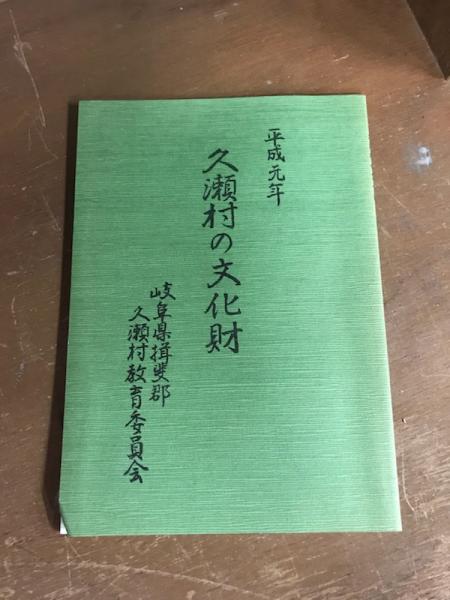 平成元年
久瀬村の文化財
岐阜県揖斐郡
久瀬村教育委員会